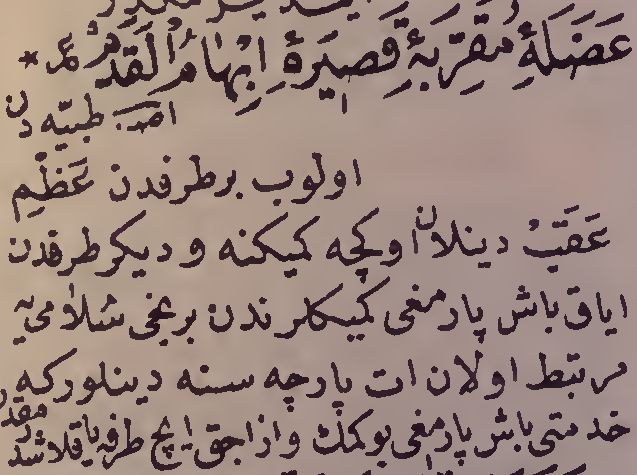 عَضَلَهٔ مُقَرِّبَهٔ قَصِيرَهٔ اِبْهَامُ الْقَدَمْ عر *
اصط طبيّه دن
اولوب بر طرفدن عَظْمِ
عَقَبْ دينلان اوكچه كميكنه و ديكر طرفدن
اياق باش پارمغى كميكلرندن برنجى سُلَامىيه
مرتبط اولان ات پارچه سنه دينلوركه
خدمتى باش پارمغى بوكمك و ازاجق ايچ طرفه ياقلاشدر مقدر